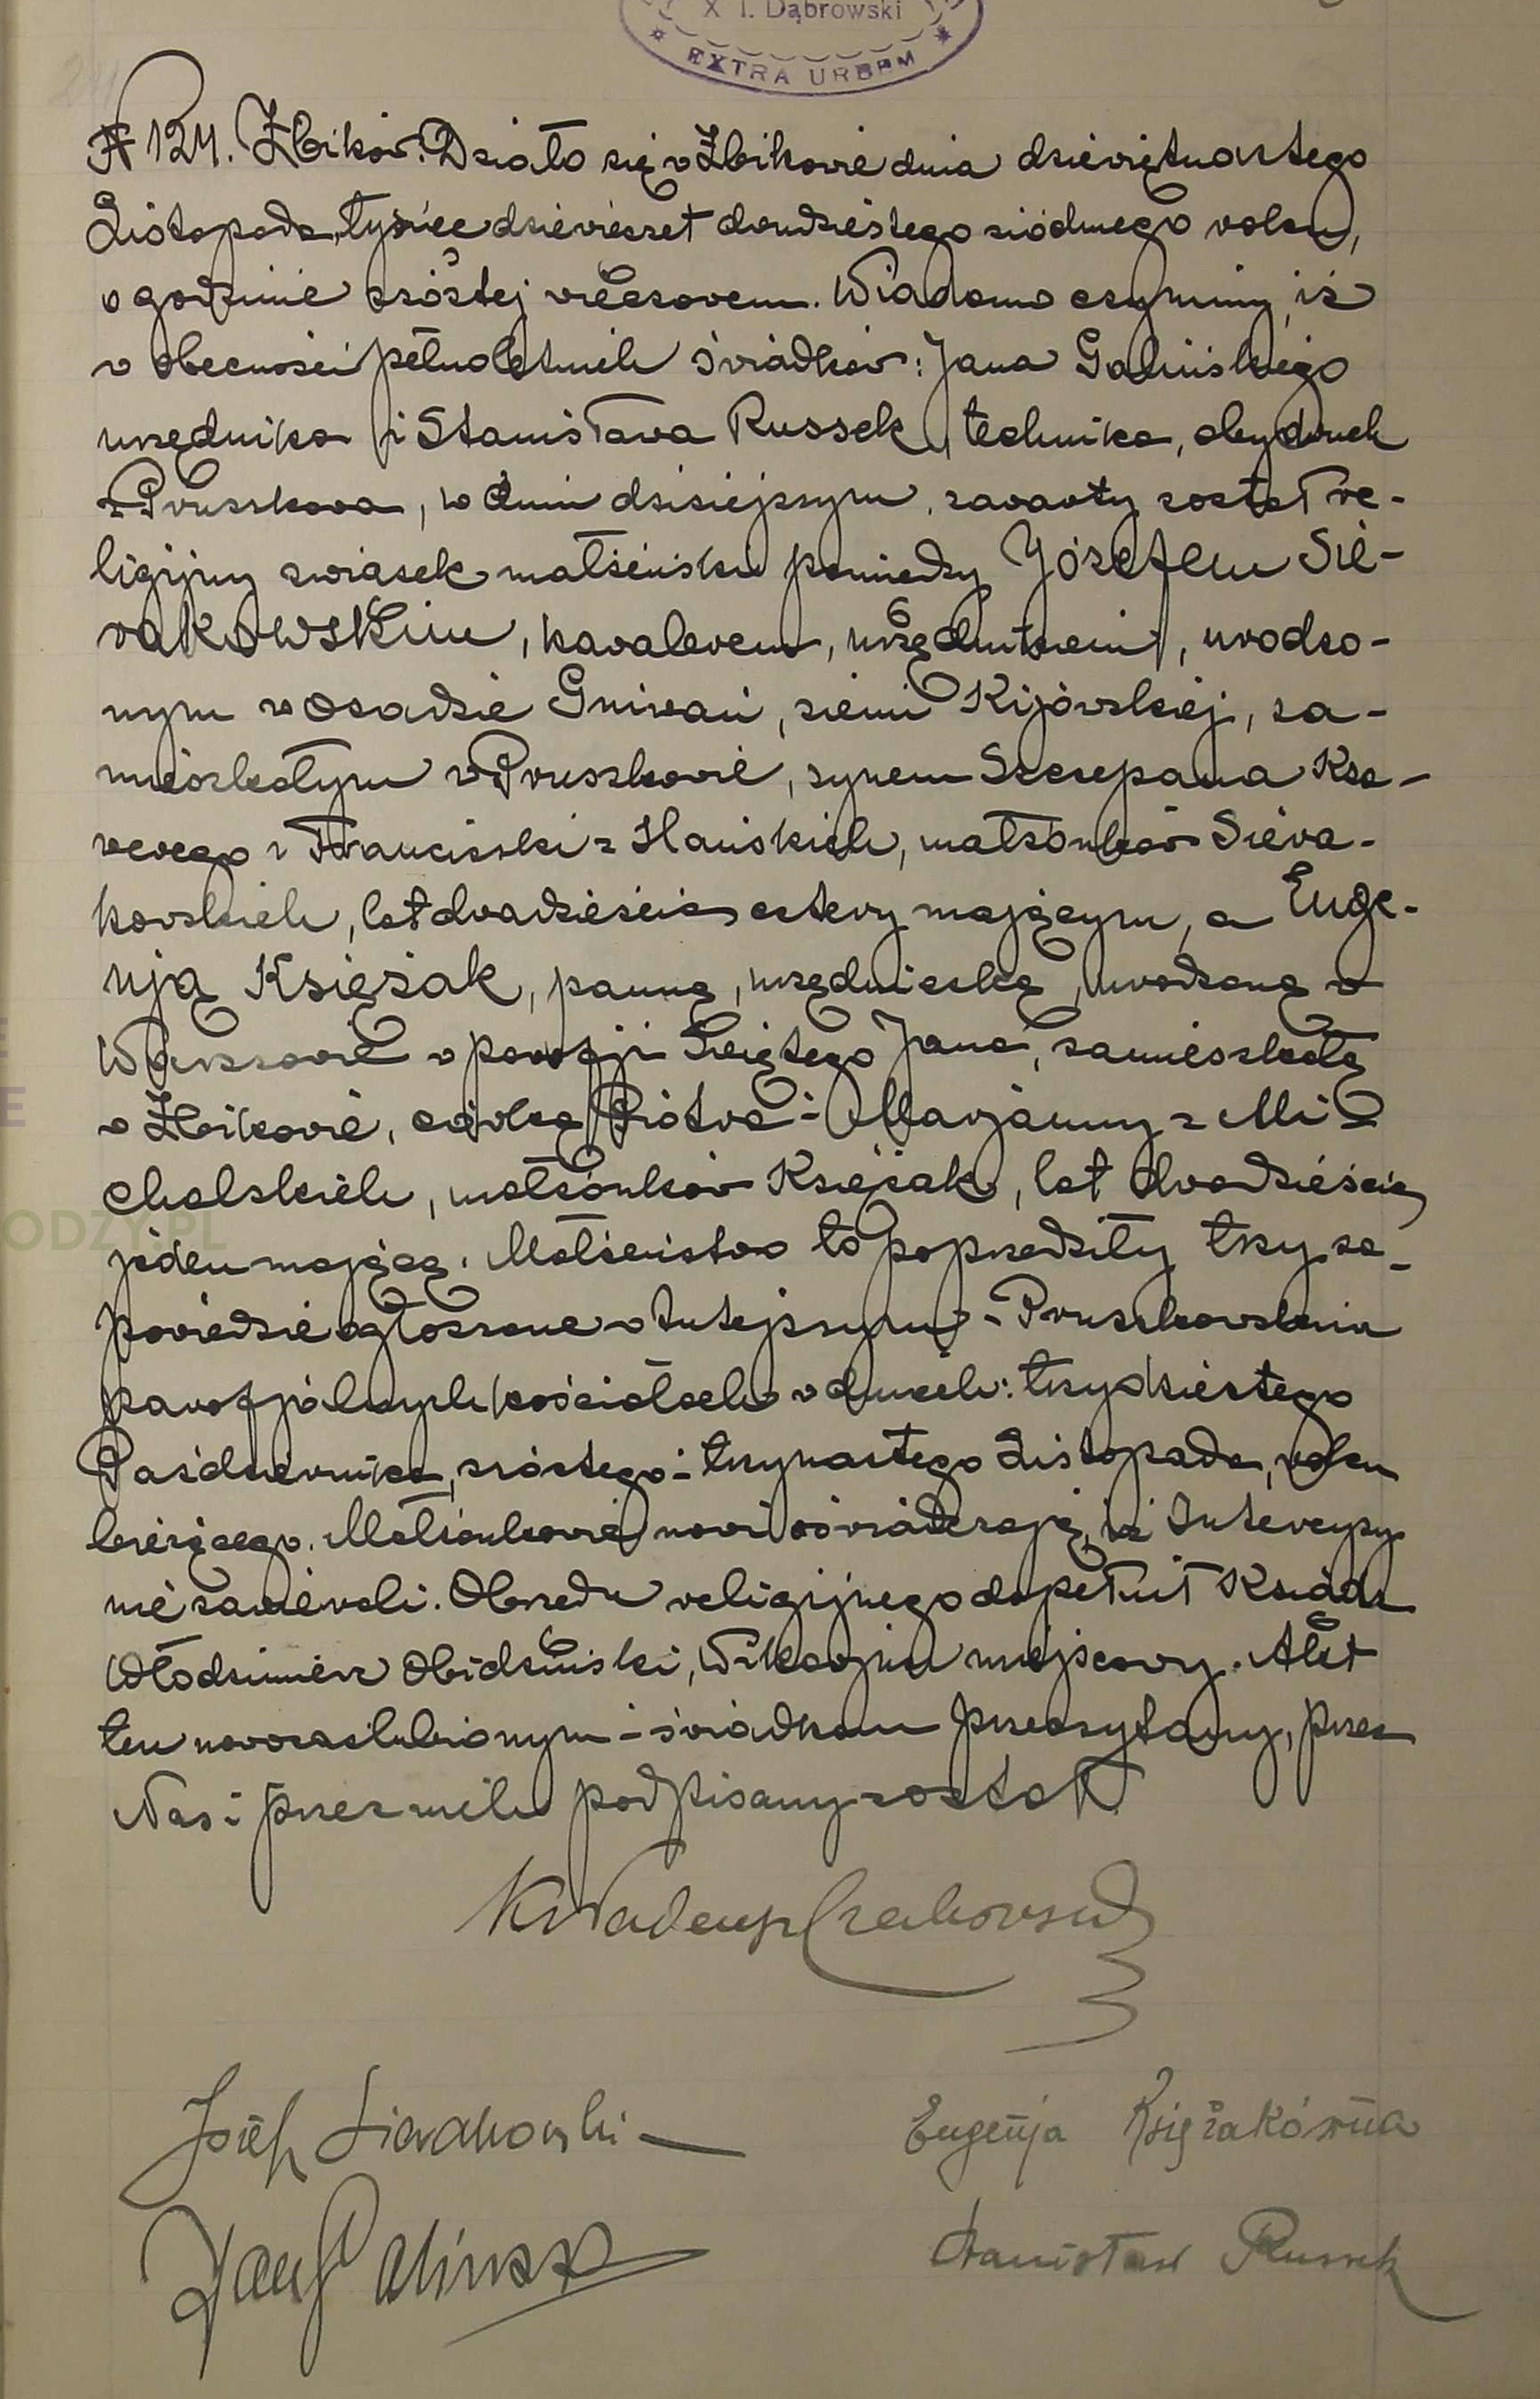 X I. Dąbrowski
EXTRA URBEM
№ 124. Żbików. Działo się w Żbikowie dnia dziewiętnastego
Listopada, tysiąc dziewięćset dwudziestego siódmego roku,
o godzinie szóstej wieczorem. Wiadomo czynimy, iż
w obecności pełnoletnich świadków: Jana Galińskiego
urzędnika i Stanisława Russek, technika, obydwuch
z Pruszkowa, w dniu dzisiejszym, zawarty został re-
ligijny związek małżeński pomiędzy Józefem Sie-
rakowskim, kawalerem, urzędnikiem, urodzo-
nym w osadzie Gniwań, ziemi Kijowskiej, za-
mieszkałym w Pruszkowie, synem Szczepana Ksa-
werego i Franciszki z Hańskich, małżonków Siera-
kowskich, lat dwadzieścia cztery mającym, a Euge-
nją Księżak, panną, urzędniczką, urodzoną w
Warszawie w parafji Świętego Jana, zamieszkałą
w Żbikowie, córką Piotra i Marjanny z Mi-
chalskich, małżonków Księżak, lat dwadzieścia
jeden mającą. Małżeństwo to poprzedziły trzy za-
powiedzie ogłoszone w tutejszym i Pruszkowskim
parafjalnych kościołach w dniach: trzydziestego
Października, szóstego i trzynastego Listopada, roku
bieżącego. Małżonkowie nowi oświadczają, iż Intercyzy
nie zawierali. Obrzędu religijnego dopełnił Ksiądz
Włodzimierz Obidziński, Wikarjusz miejscowy. Akt
ten nowozaślubionym i świadkom przeczytany, przez
Nas i przez nich podpisany został.
Józef Sierakowski
Eugenja Księżakówna
Jan Galiński
Stanisław Russek
ODZY.PL